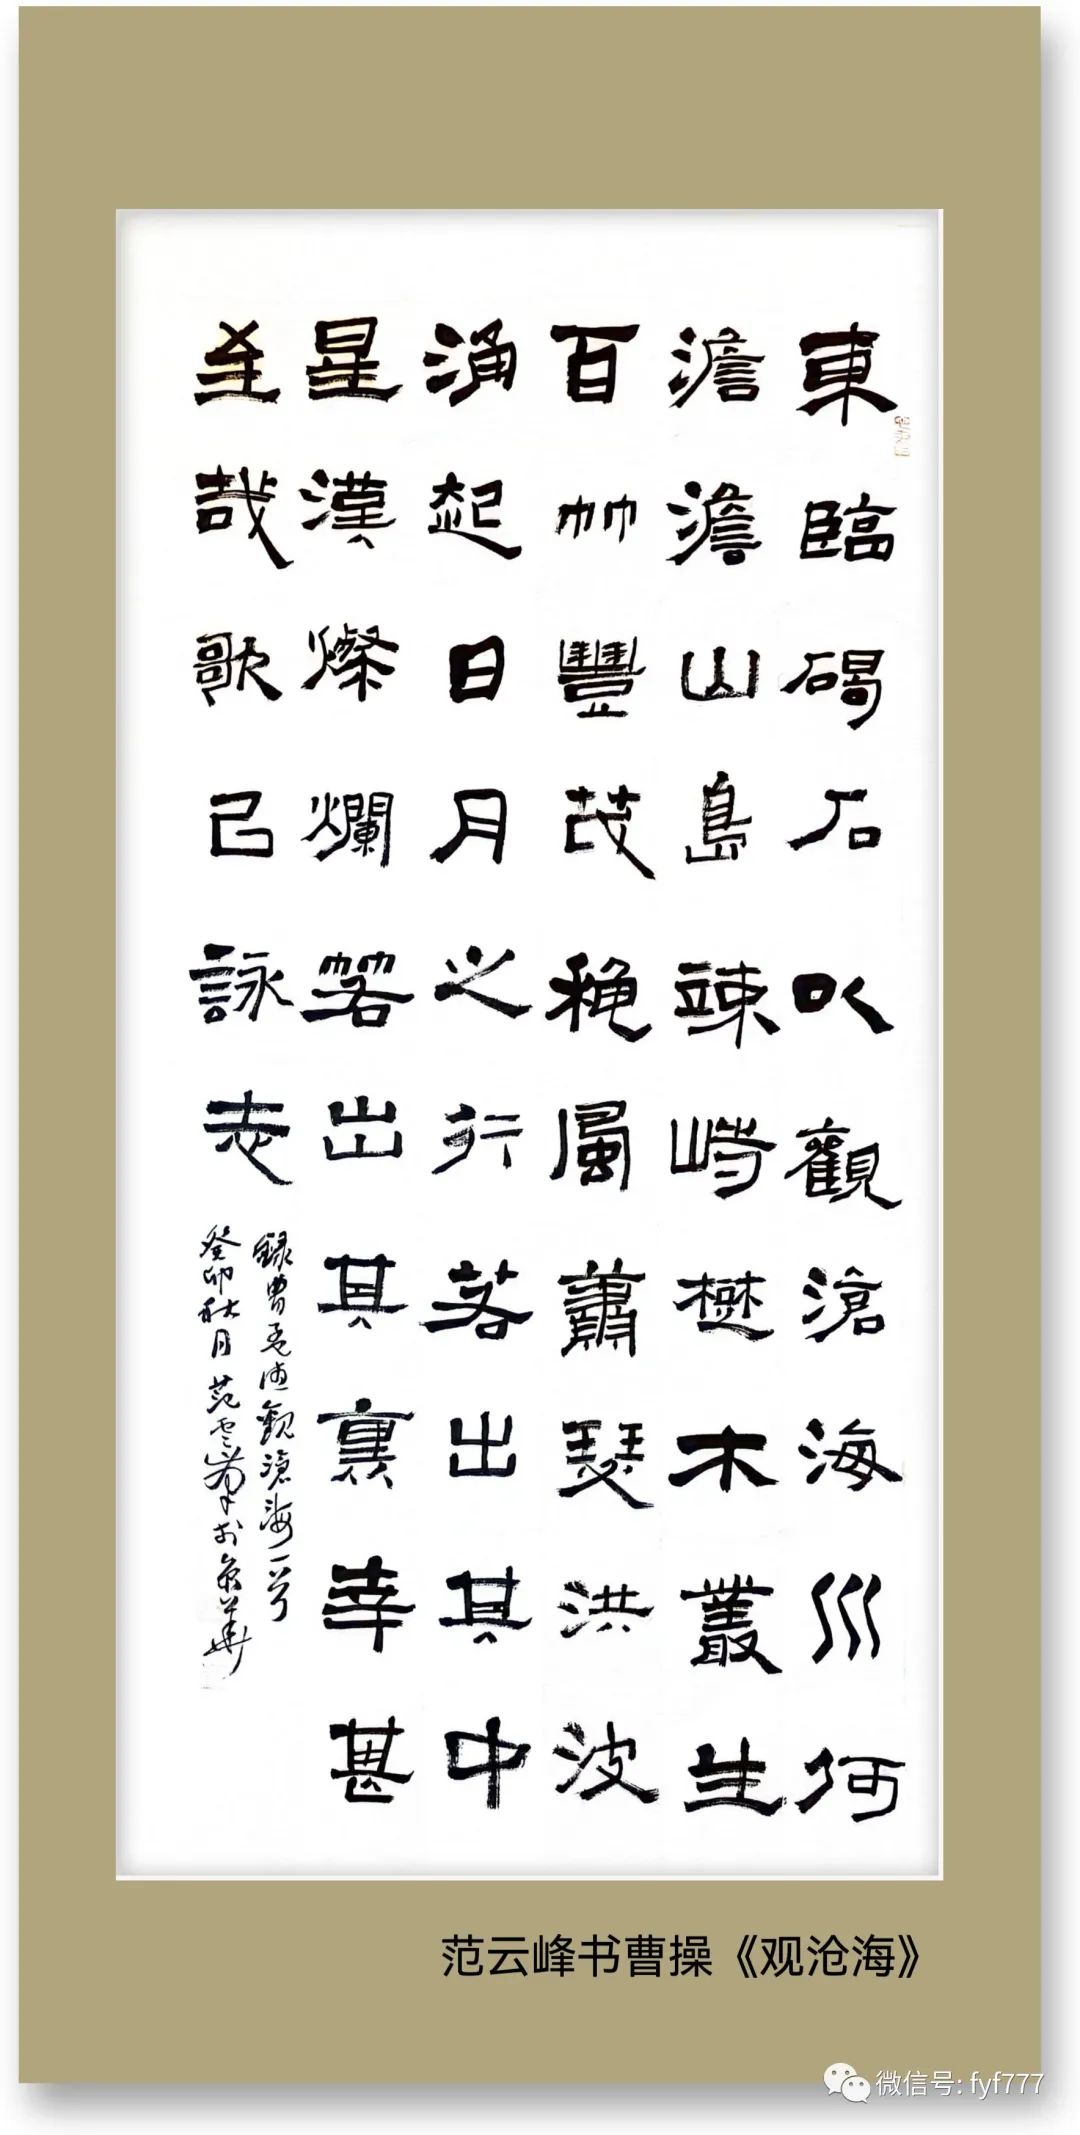 東臨碣石以觀滄海水何
澹澹山島竦峙樹木叢生
百艸豐茂秋風蕭瑟洪波
涌起日月之行若出其中
星漢燦爛若出其裏幸甚
至哉歌㠯詠志
錄曹孟德觀滄海一首
癸卯秋月范雲峯於京華
范云峰书曹操《观沧海》
微信号: fyf777